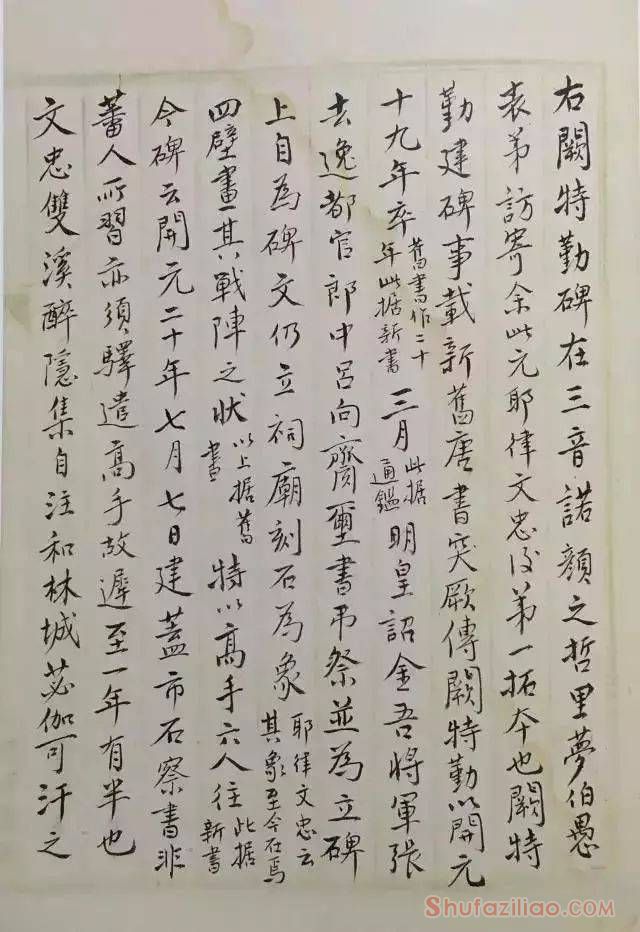 右闕特勤碑在三音諾顏之哲里夢伯愚
表弟訪寄余此元耶律文忠後第一拓本也闕特
勤建碑事載新舊唐書突厥傳闕特勤以開元
十九年卒舊書作二十年此据新書三月此据通鑑明皇詔金吾將軍張
去逸都官郎中呂向齎璽書弔祭並為立碑
上自為碑文仍立祠廟刻石為象耶律文忠云其象至今在焉
四壁畫其戰陣之狀以上据舊書特以高手六人往此据新書
今碑云開元二十年七月七日建蓋市石察書非
蕃人所習亦須驛遣高手故遲至一年有半也
文忠雙溪醉隱集自注和林城苾伽可汗之
Shufaziliao.com